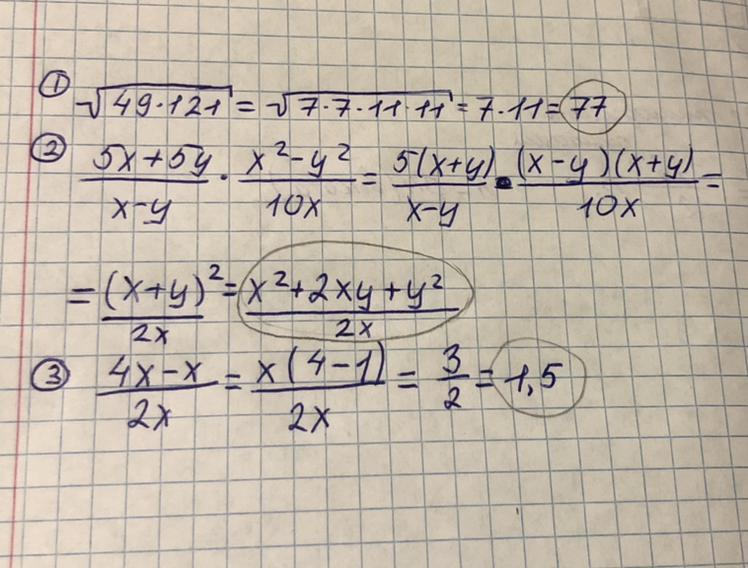 ① √49·121 = √7·7·11·11 = 7·11 = 77
② (5x+5y)/(x-y) · (x²-y²)/(10x) = 5(x+y)/(x-y) · (x-y)(x+y)/(10x) =
= (x+y)²/(2x) = (x²+2xy+y²)/(2x)
③ (4x-x)/(2x) = x(4-1)/(2x) = 3/2 = 1,5